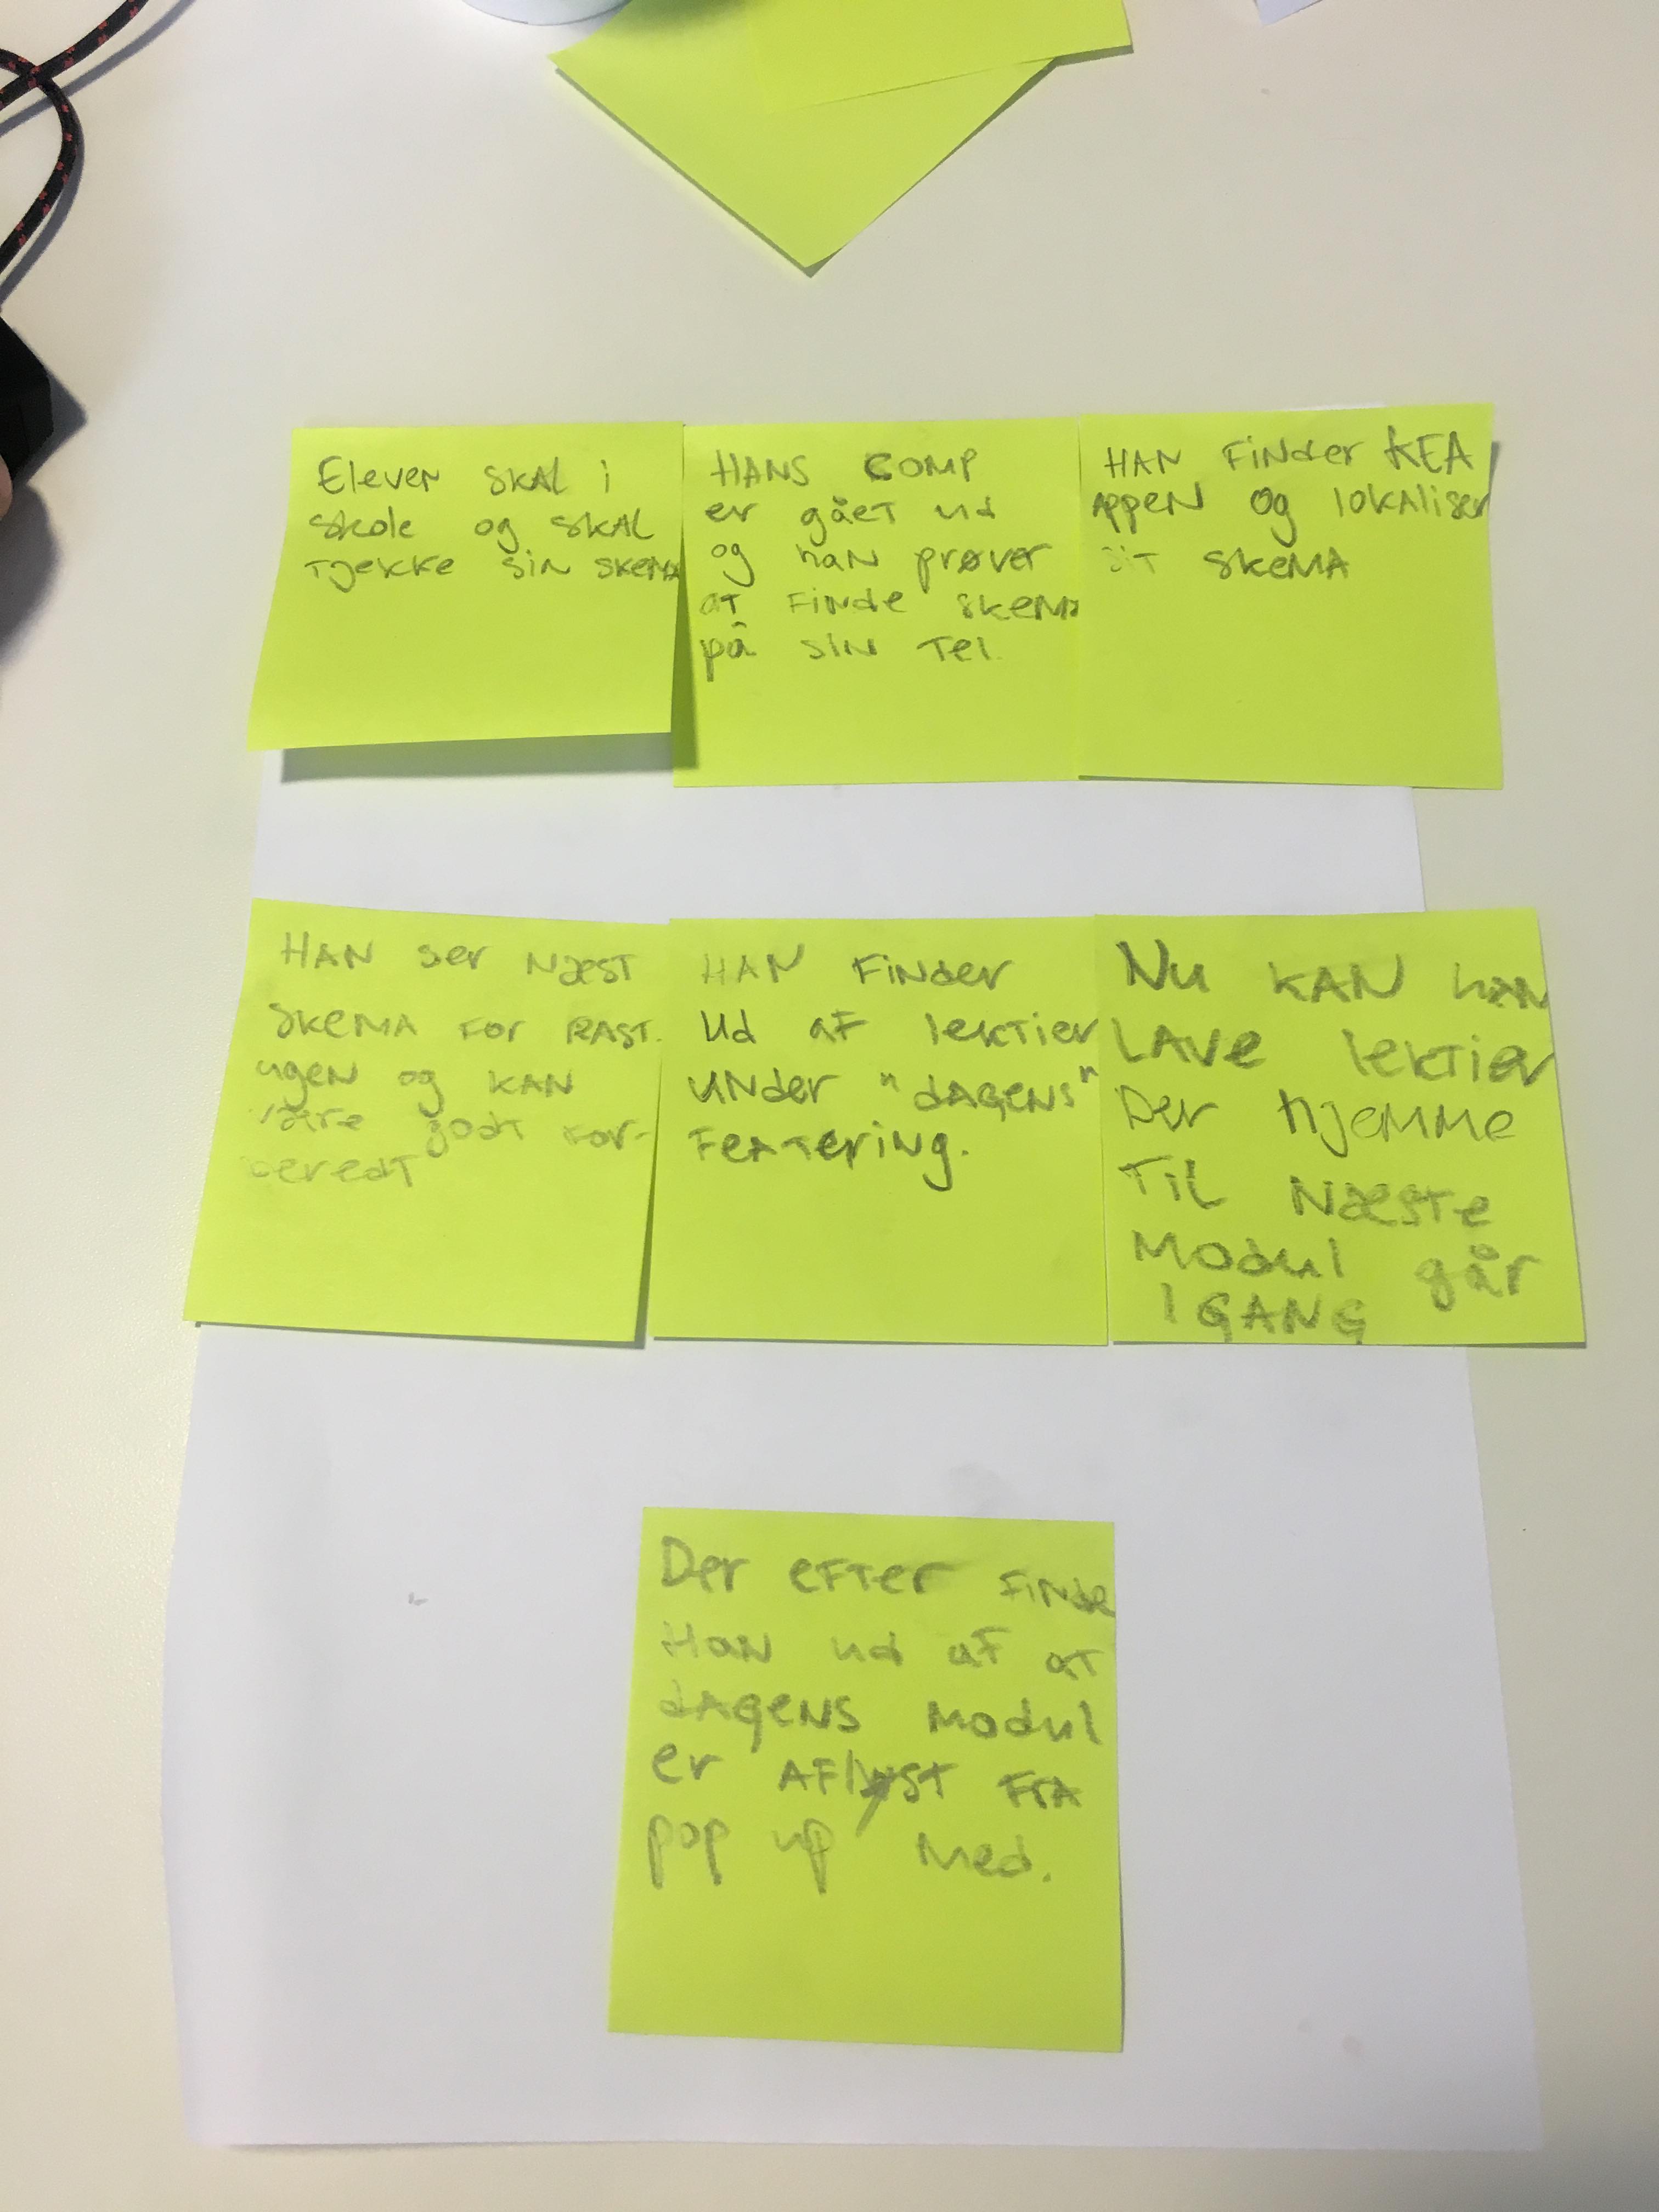 Eleven skal i
skole og skal
tjekke sin skema
Hans comp
er gået ud
og han prøver
at finde skema
på sin tel.
Han finder KEA
appen og lokaliser
sit skema
Han ser næst
skema for rast.
ugen og kan
være godt for-
beredt
Han finder
ud af lektier
under "dagens"
featering.
Nu kan han
lave lektier
Der hjemme
til næste
modul går
i gang
Der efter finde
Han ud af at
dagens modul
er aflyst fra
pop up med.